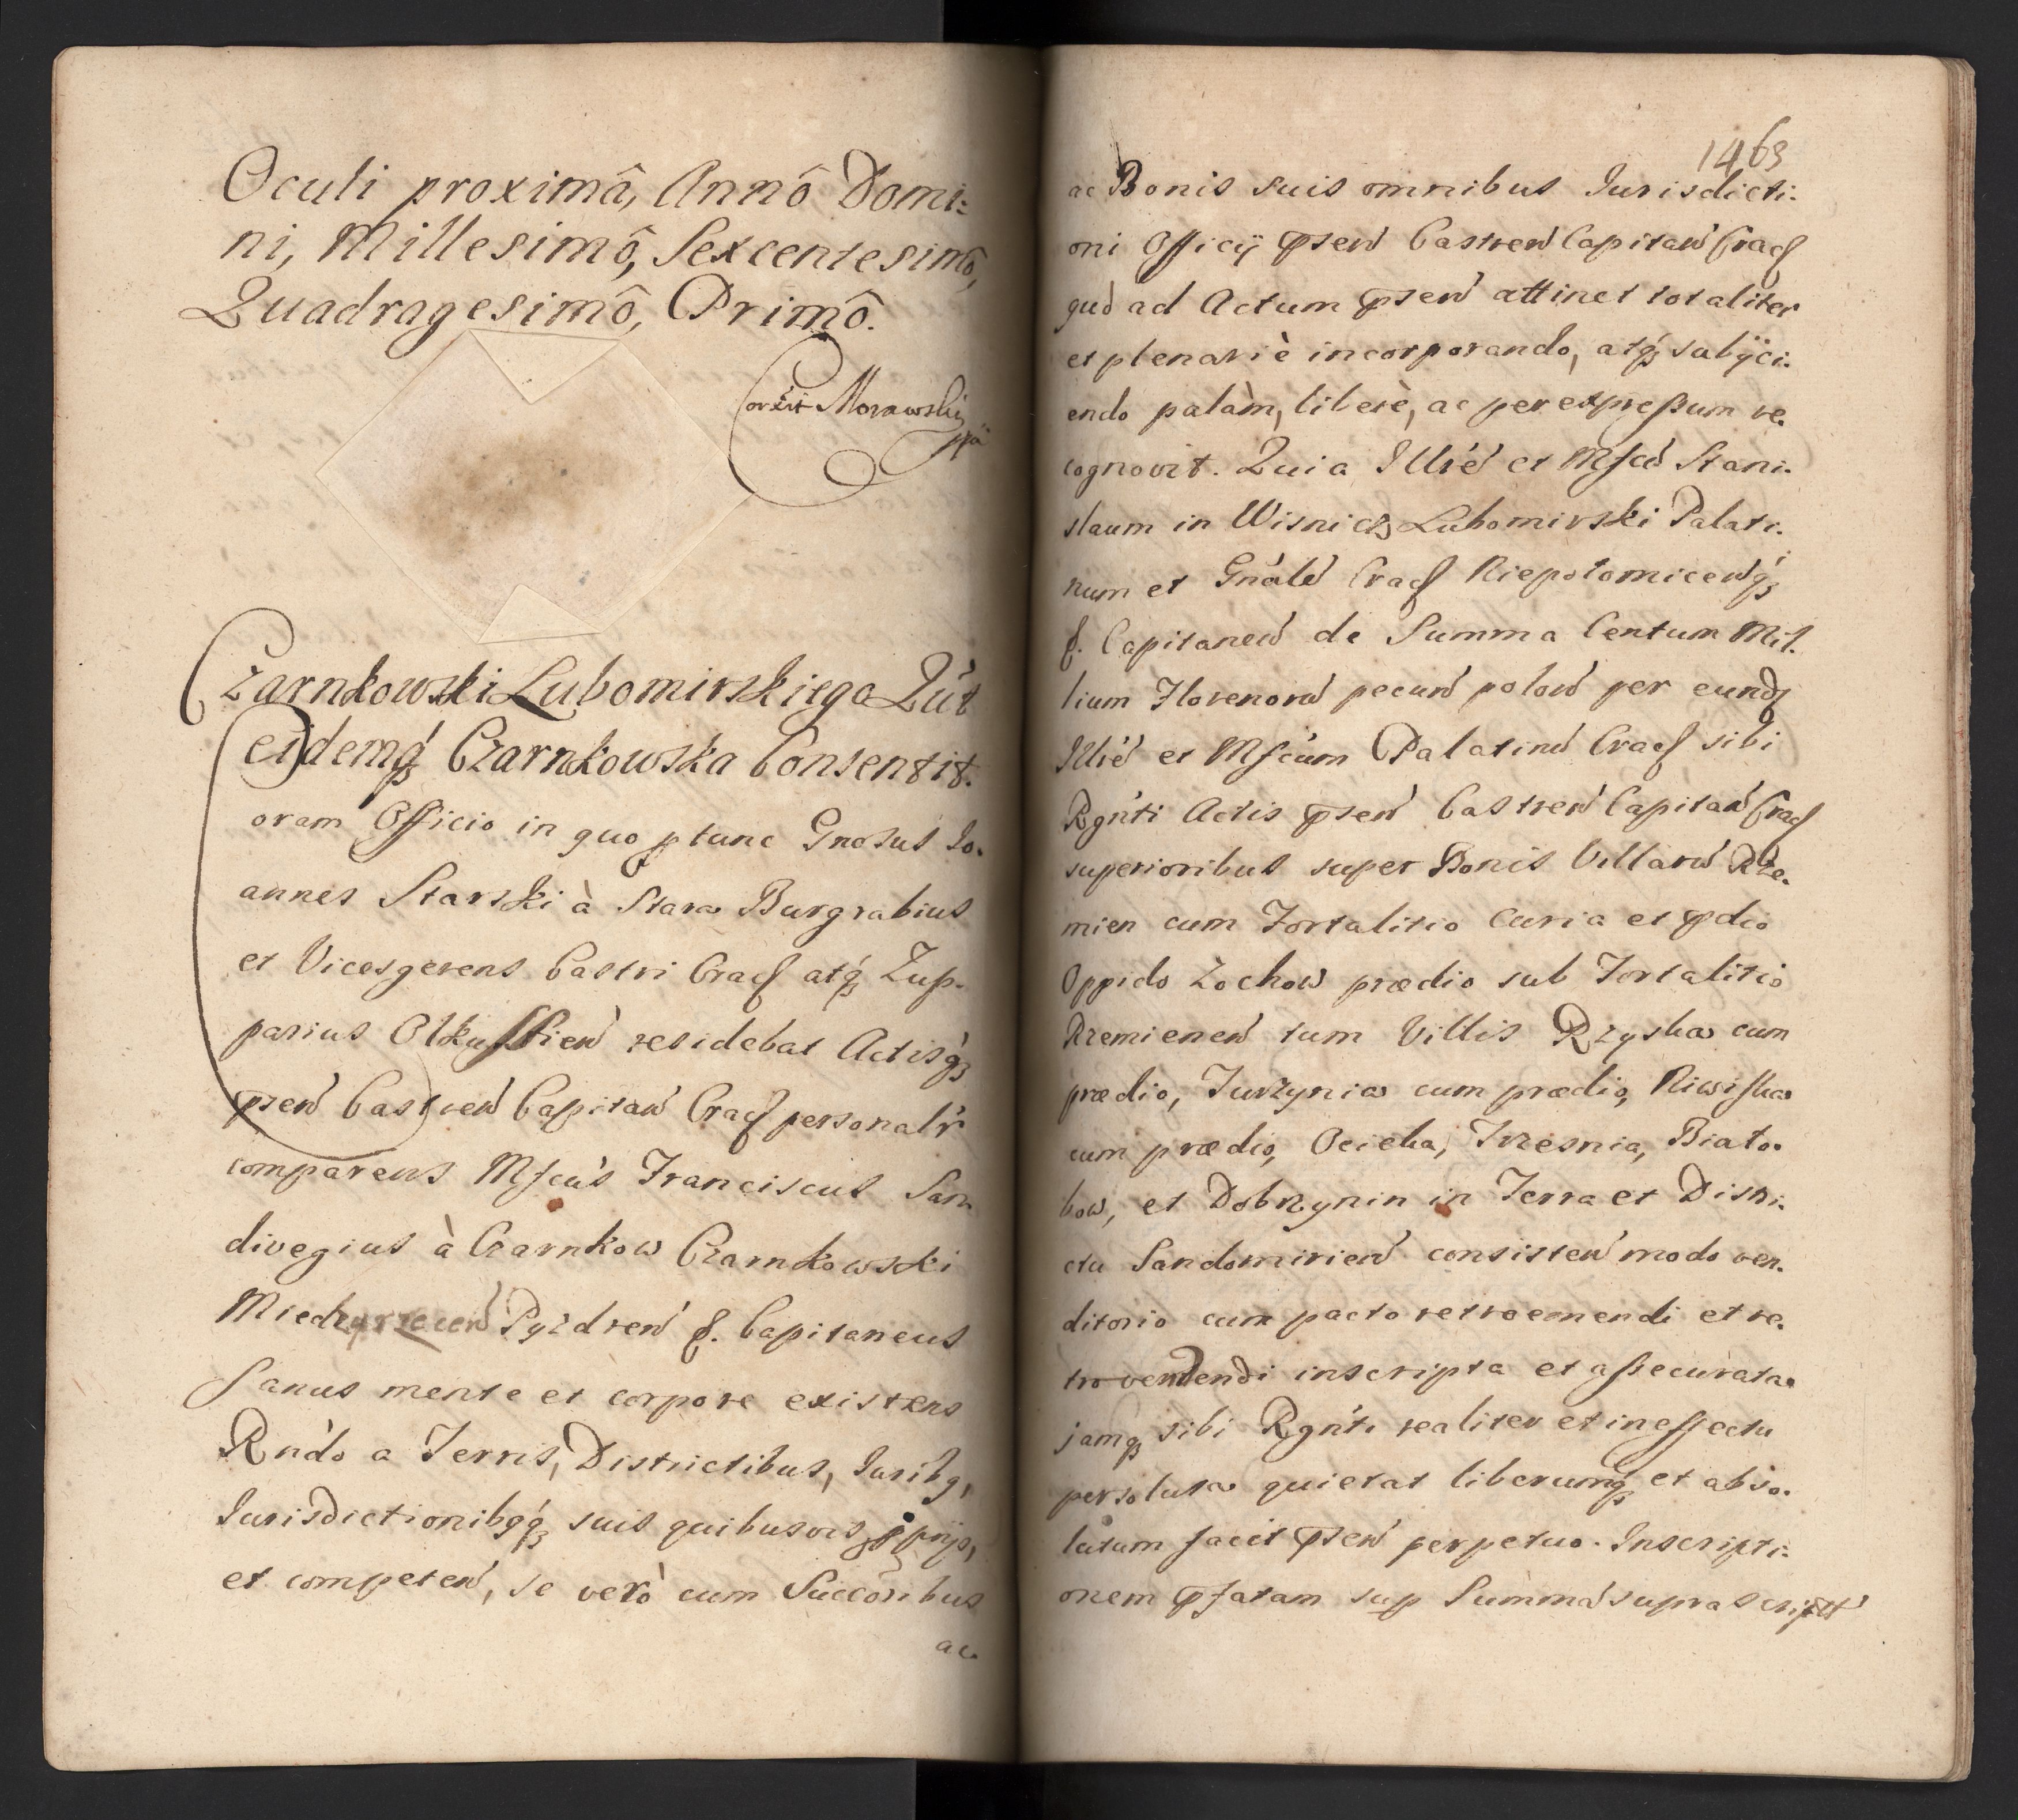 Oculi proximâ, Annô Domi:
ni, Millesimô, Sexcentesimô,
Quadragesimô, Primô.
Corxit Morawski
mpa
Czarnkowski Lubomirskiego Quit
eidemq́ Czarnkowska Consentit.
Coram Officio in quo ptunc Gnosus Jo.
annes Starski à Stara Burgrabius
et Vicesgerens Castri Crac atq́ Zup.
parius Olkussien residebat Actisq́
psen Castren Capitan Crac personalr
comparens Mfcus Franciscus San
divogius à Czarnkow Czarnkowski
Miedzyrzecen Pyzdren f. Capitaneus
Sanus mente et corpore existens
Rndo a Terris, Districtibus, Juribq,
Jurisdictionibqq́ suis quibusvis, pprijs,
et competen, se verò cum Succoribus
ac
1463
ac Bonis suis omnibus Jurisdicti:
oni Officij psen Castren Capitan Crac
quo ad Actum psen attinet totaliter
et plenariè incorporando, atq́ subÿci.
endo palàm, liberè, ac per expressum re.
cognovit. Quia Illre et Mfcu Stani.
slaum in Wisnicz Lubomirski Palati.
num et Gnale Crac Niepolomicenq́
f. Capitaneu de Summa Centum Mil.
lium Florenoru pecun polon per eund
Illre et Mfcum Palatinu Crac sibi
Rgnti Actis psen Castren Capitan Crac
superioribus super Bonis Villaru Rze.
mien cum Fortalitio Curia et pdio
Oppido Zochow prædio sub Fortalitio
Rzemienen tum Villis Rzyska cum
prædio, Turzynia cum prædio, Niwiska
cum prædio, Ocieka, Trzesnia, Biato.
bow, et Dobrzynin in Terra et Distri.
ctu Sandomirien consisten modo ven.
ditorio cum pacto retroemendi et re.
tro vendendi inscripta et assecurata
jamq́ sibi Rgnti realiter et in effectu
persoluta quietat liberumq́ et abso.
lutum facit psen perpetuo. Inscripti.
onem pfatam sup Summa suprascript